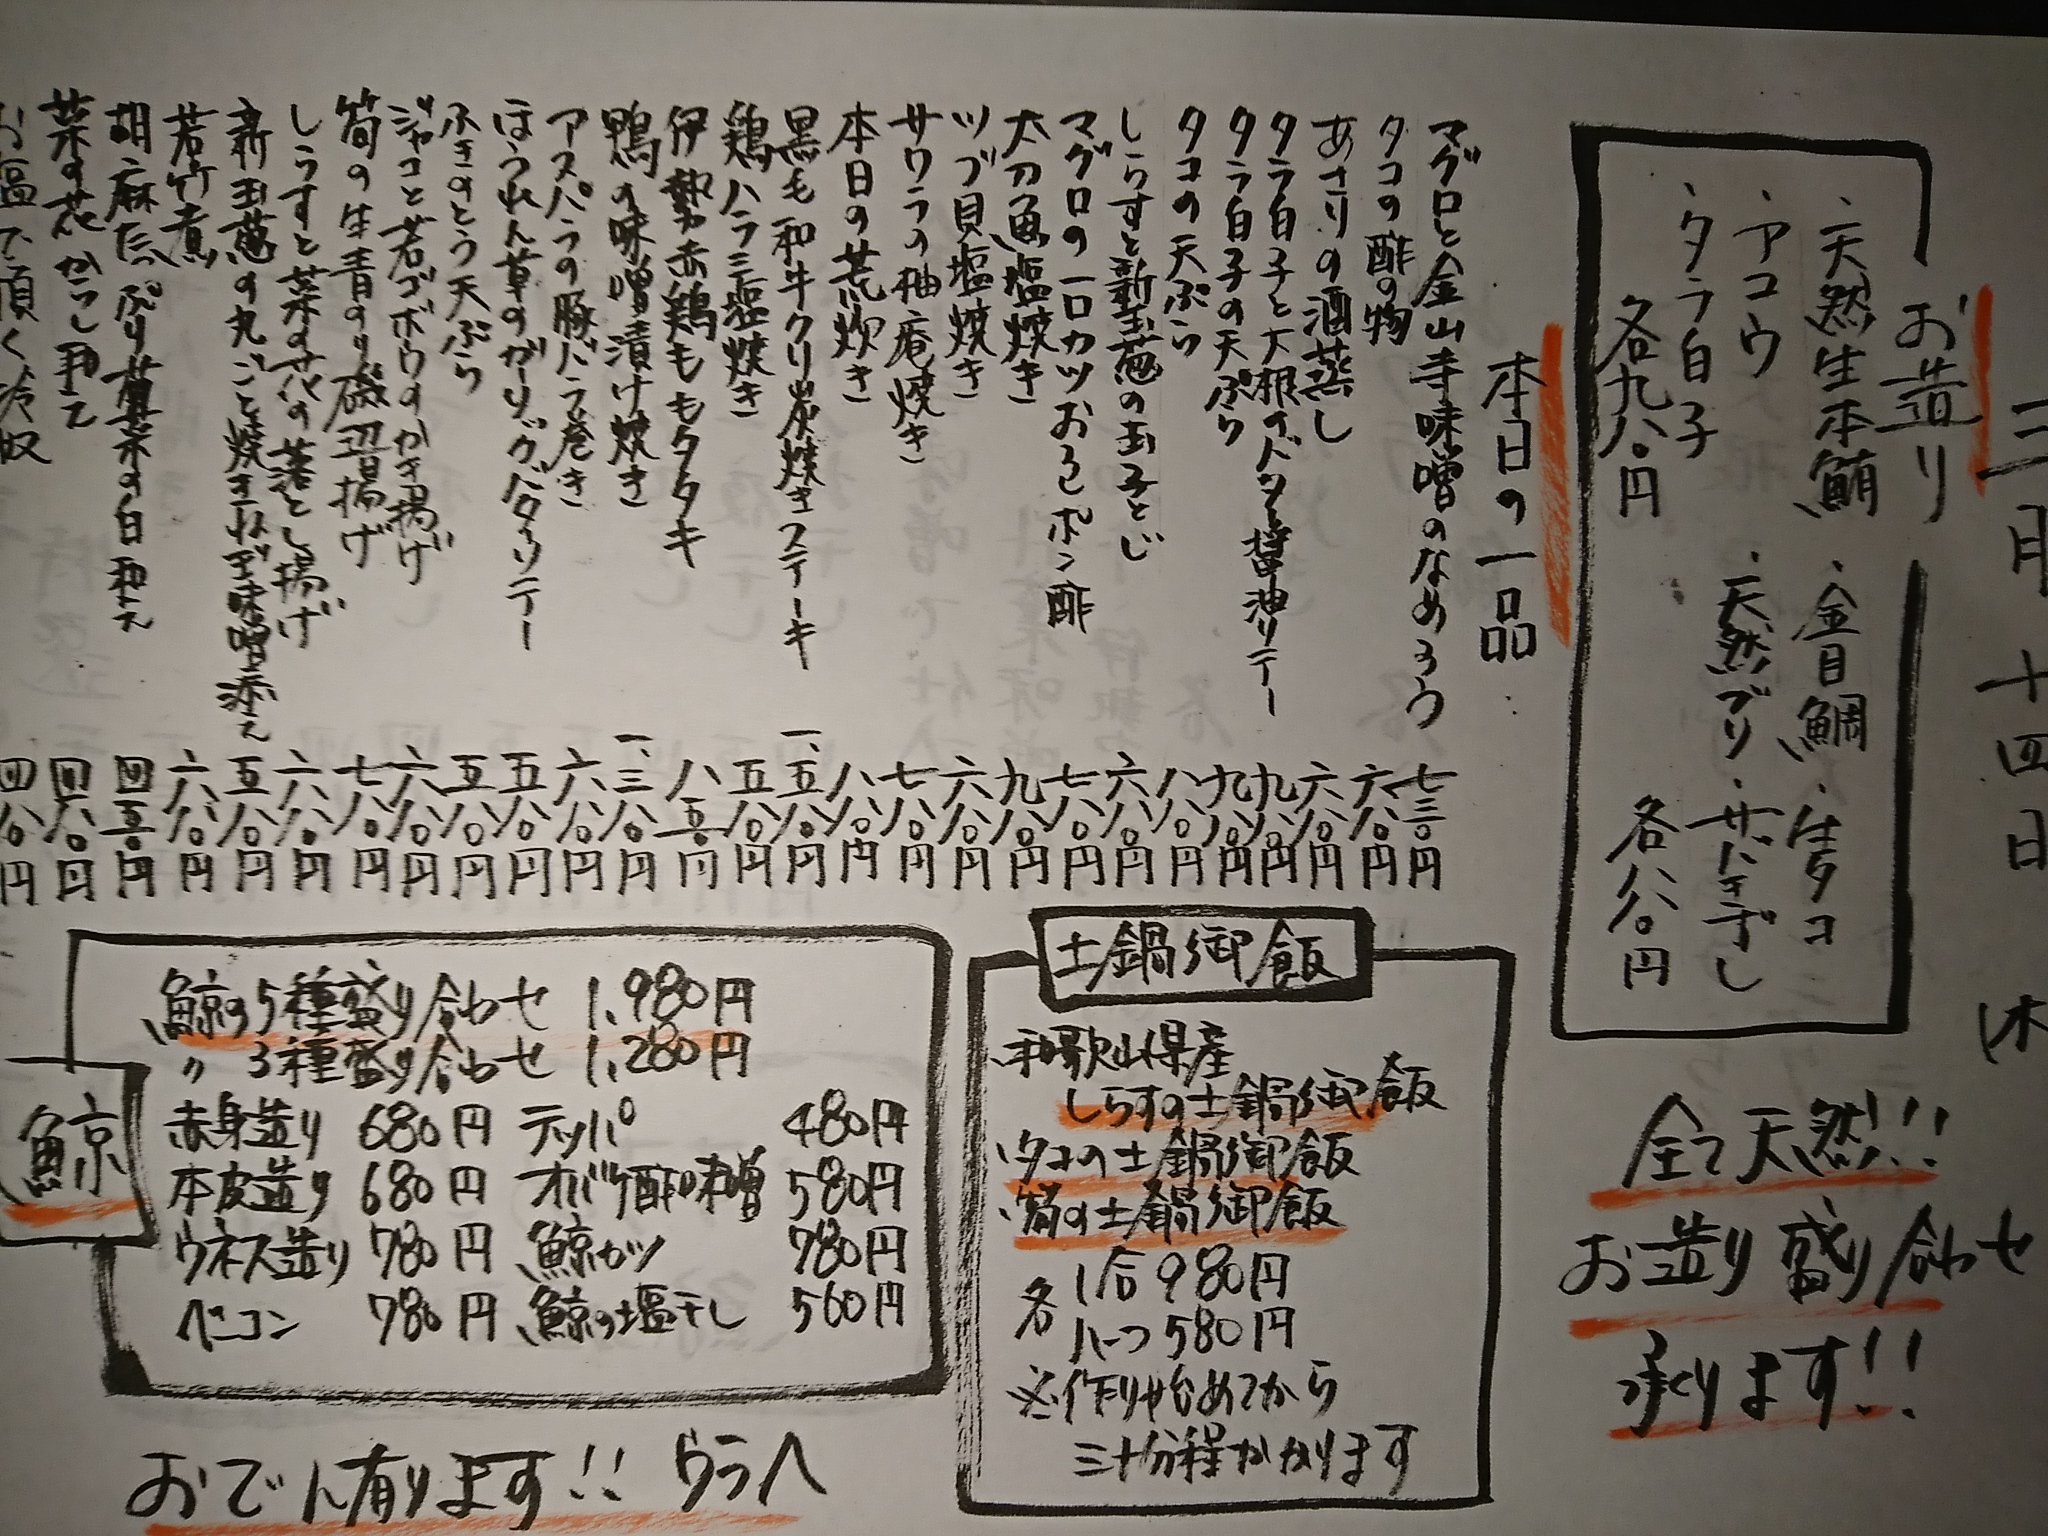 三月十四日
お造り
・天然生本鮪
・金目鯛
・生タコ
・アコウ
・天然ブリ
・サバきずし
・タラ白子
各九八〇円
各八八〇円
全て天然!!
お造り盛り合わせ
承ります!!
本日の一品
マグロと金山寺味噌のなめろう 七三〇円
タコの酢の物 六八〇円
あさりの酒蒸し 六八〇円
タラ白子と大根のバター醤油ソテー 九八〇円
タラ白子の天ぷら 九八〇円
タコの天ぷら 八八〇円
しらすと新玉葱の玉子とじ 六八〇円
マグロの一口カツおろしポン酢 七八〇円
太刀魚塩焼き 九八〇円
ツブ貝塩焼き 六八〇円
サワラの柚庵焼き 七八〇円
本日の荒炊き 八八〇円
黒毛和牛クリ炭焼きステーキ 一、五八〇円
鶏ハラミ塩焼き 五八〇円
伊勢赤鶏ももタタキ 八五〇円
鴨の味噌漬け焼き 一、三八〇円
アスパラの豚バラ巻き 六八〇円
ほうれん草のガーリックバターソテー 五八〇円
ふきのとう天ぷら 五八〇円
ジャコと若ゴボウのかき揚げ 六八〇円
筍の生青のり磯辺揚げ 七八〇円
しらすと菜の花の落とし揚げ 六八〇円
新玉葱の丸ごと焼きねぎ味噌添え 五八〇円
若竹煮 六八〇円
胡麻たっぷり蓬菜の白和え 四五〇円
菜の花からし和え 四八〇円
お塩で頂く冷奴 四八〇円
土鍋御飯
和歌山県産
しらすの土鍋御飯
タコの土鍋御飯
筍の土鍋御飯
各
1合980円
ハーフ580円
※作り始めてから
三十分程かかります
鯨
鯨の5種盛り合わせ 1,980円
〃 3種盛り合わせ 1,280円
赤身造り 680円 テッパ 480円
本皮造り 680円 オバケ酢味噌 580円
ウネス造り 780円 鯨カツ 780円
ベーコン 780円 鯨の塩干し 560円
おでん有ります!! ウラへ